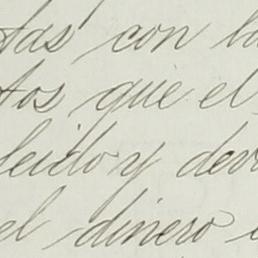 tas con la
tos que el
leido y dev
el dinero